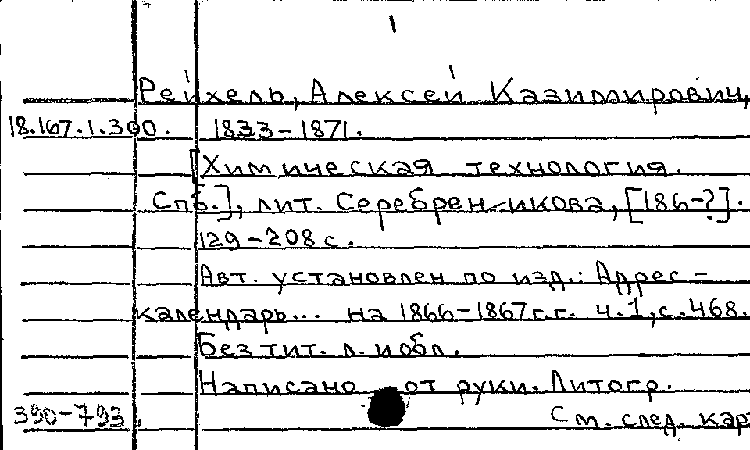 1
Рейхель, Алексей Казимирович,
18.167.1.390. 1833-1871.
[Химическая технология.
Спб.], лит. Серебренникова, [186-?].
129-208 с.
Авт. установлен по изд.: Адрес-
календарь... на 1866-1867 г.г. ч.1, с.468.
Без тит. л. и обл.
Написано от руки. Литогр.
390-793. См. след. кар